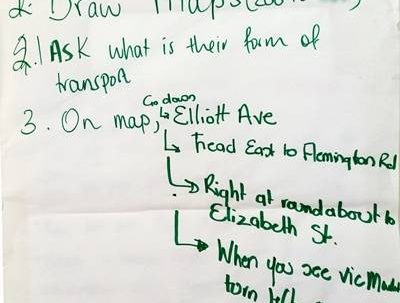 2. Draw Maps
2.1 ASK what is their form of
transport
3. On map, Go down Elliott Ave
↳ Head East to Flemington Rd
↳ Right at roundabout to
Elizabeth St.
↳ When you see Vic
turn